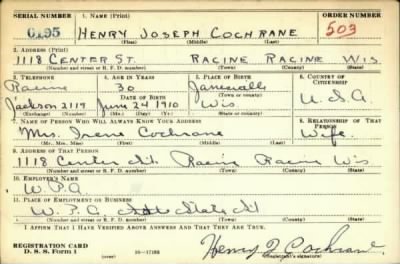 SERIAL NUMBER 1. NAME (Print) ORDER NUMBER
0195 HENRY JOSEPH COCHRANE 503
(First) (Middle) (Last)
2. ADDRESS (Print)
1118 CENTER ST. RACINE RACINE WIS
(Number and street or R. F. D. number) (Town) (County) (State)
3. TELEPHONE 4. AGE IN YEARS 5. PLACE OF BIRTH 6. COUNTRY OF CITIZENSHIP
Racine 30 Janesville
DATE OF BIRTH (Town or county)
Jackson 2119 June 24 1910 Wis U.S.A
(Exchange) (Number) (Mo.) (Day) (Yr.) (State or country)
7. NAME OF PERSON WHO WILL ALWAYS KNOW YOUR ADDRESS 8. RELATIONSHIP OF THAT PERSON
Mrs. Irene Cochrane Wife
(Mr., Mrs., Miss) (First) (Middle) (Last)
9. ADDRESS OF THAT PERSON
1118 Center St. Racine Racine Wis
(Number and street or R. F. D. number) (Town) (County) (State)
10. EMPLOYER'S NAME
W.P.A.
11. PLACE OF EMPLOYMENT OR BUSINESS
W.P.A. State St
(Number and street or R. F. D. number) (Town) (County) (State)
I AFFIRM THAT I HAVE VERIFIED ABOVE ANSWERS AND THAT THEY ARE TRUE.
REGISTRATION CARD
D. S. S. Form 1 16-17105 Henry J Cochrane
(Registrant's signature)